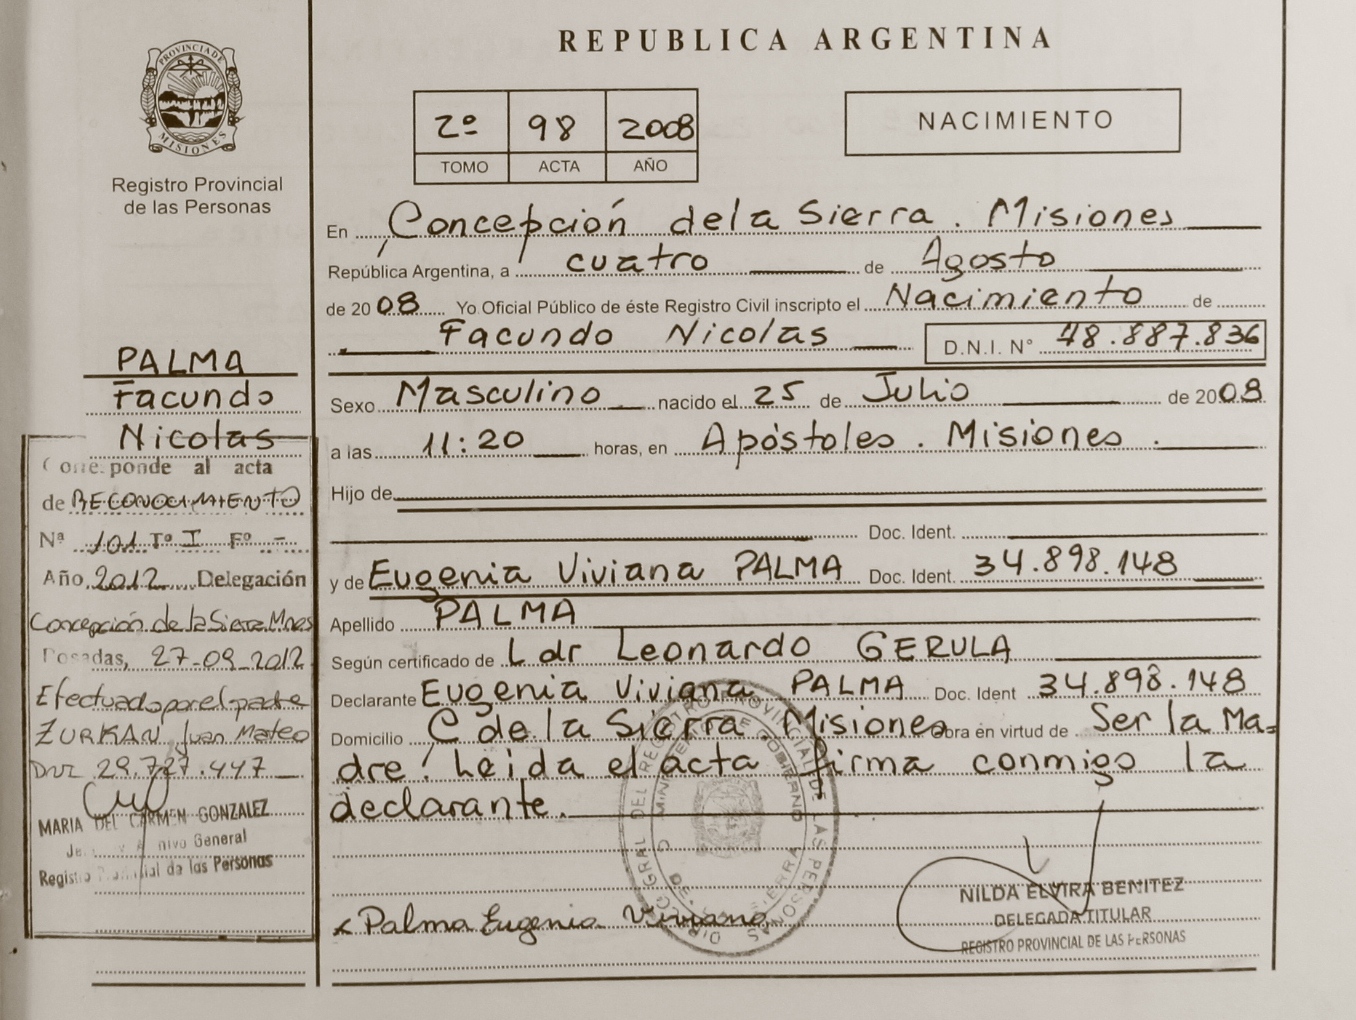 REPUBLICA ARGENTINA
PROVINCIA DE
MISIONES
Registro Provincial
de las Personas
2º 98 2008
TOMO ACTA AÑO
NACIMIENTO
En Concepción dela Sierra. Misiones
República Argentina, a cuatro de Agosto
de 2008 Yo Oficial Público de éste Registro Civil inscripto el Nacimiento de
Facundo Nicolas D.N.I. Nº 48.887.836
Sexo Masculino nacido el 25 de Julio de 2008
a las 11:20 horas, en Apóstoles. Misiones.
Hijo de
Doc. Ident.
y de Eugenia Viviana PALMA Doc. Ident. 34.898.148
Apellido PALMA
Según certificado de Ldr Leonardo GERULA
Declarante Eugenia Viviana PALMA Doc. Ident 34.898.148
Domicilio C de la Sierra Misiones obra en virtud de Ser la Ma-
dre. Leida el acta firma conmigo la
declarante.
x Palma Eugenia Viviana
NILDA ELVIRA BENITEZ
DELEGADA TITULAR
REGISTRO PROVINCIAL DE LAS PERSONAS
PALMA
Facundo
Nicolas
Corresponde al acta
de RECONOCIMIENTO
Nª 101 Tº I Fº -
Año 2012 Delegación
Concepción de la Sierra Mnes
Posadas, 27-09-2012
Efectuado por el padre
ZURKAN Juan Mateo
DNI 29.727.447
MARIA DEL CARMEN GONZALEZ
General
Registro Provincial de las Personas